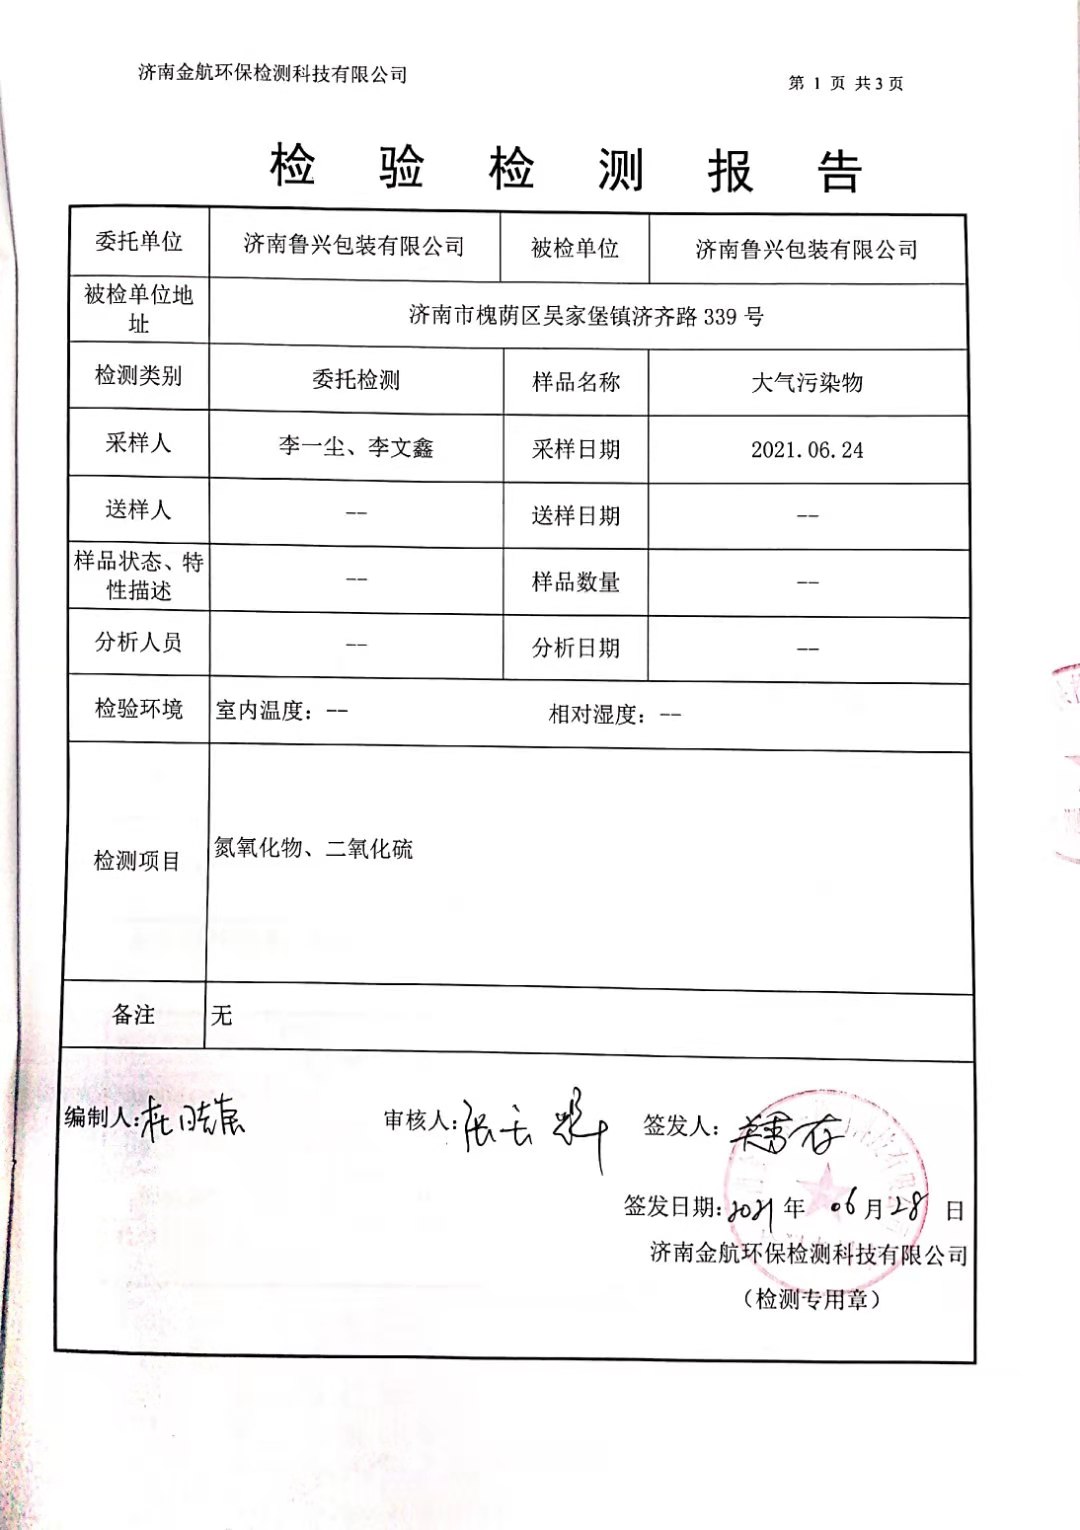 济南金航环保检测科技有限公司
第 1 页 共3页
检验检测报告
委托单位 济南鲁兴包装有限公司 被检单位 济南鲁兴包装有限公司
被检单位地址 济南市槐荫区吴家堡镇济齐路 339 号
检测类别 委托检测 样品名称 大气污染物
采样人 李一尘、李文鑫 采样日期 2021.06.24
送样人 -- 送样日期 --
样品状态、特性描述 -- 样品数量 --
分析人员 -- 分析日期 --
检验环境 室内温度：-- 相对湿度：--
检测项目 氮氧化物、二氧化硫
备注 无
编制人: 审核人: 签发人:
签发日期:2021年 06月28日
济南金航环保检测科技有限公司
（检测专用章）